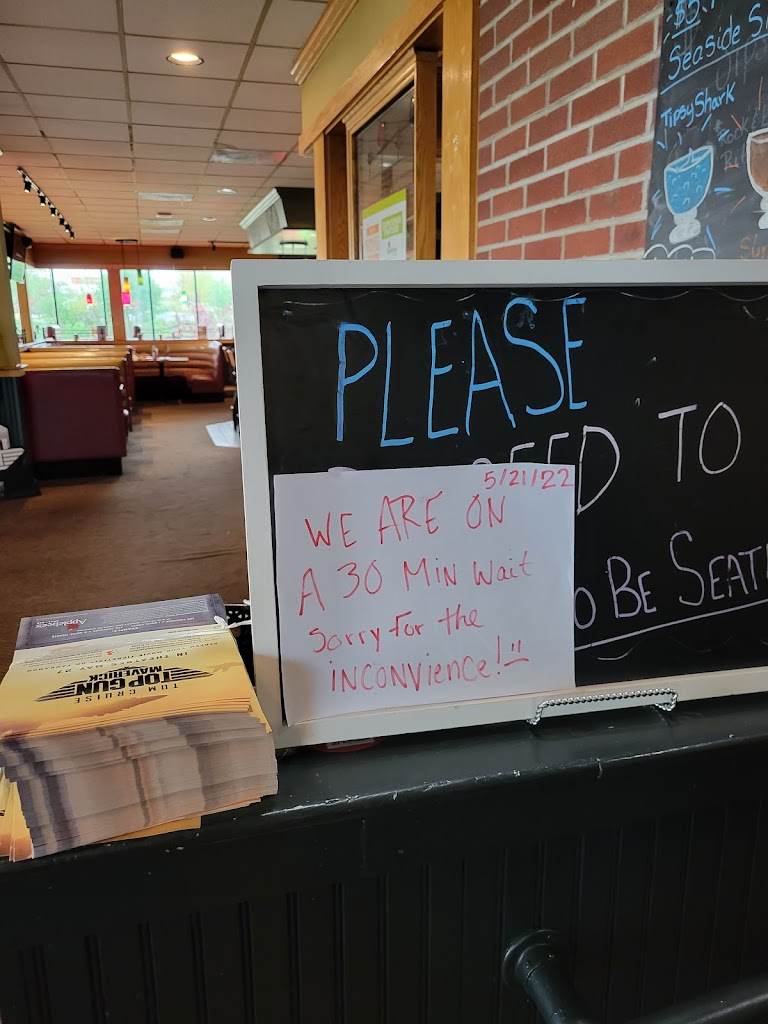 $5.
Seaside S
TipsyShark
PLEASE
EED TO
O BE SEAT
5/21/22
WE ARE ON
A 30 Min Wait
Sorry for the
INCONVience!
Applebee's
TOM CRUISE
TOP GUN
MAVERICK
IN THEATRES MAY 27